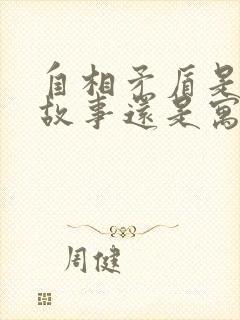 自相矛盾是
故事還是寓
周健